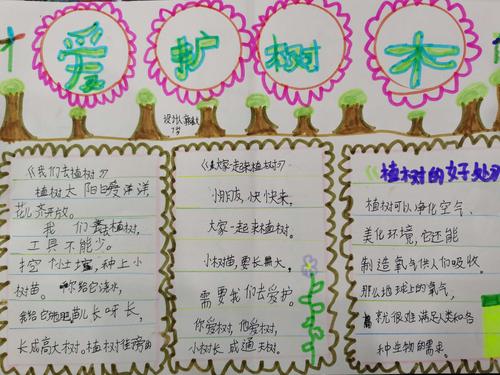 爱护树木
设计人
《我们去植树》
植树太阳日爱洋洋
花儿齐开放。
我们去植树,
工具不能少。
挖个小土堆,种上小
树苗。你给它浇水,
我给它施肥苗儿长呀长,
长成高大树。植树
《大家一起来植树》
小朋友,快快来,
大家一起来植树。
小树苗,要长大,
需要我们去爱护。
你爱树,他爱树,
小树长成通天树。
《植树的好处》
植树可以净化空气、
美化环境,它还能
制造氧气供人们吸收。
那么地球上的氧气,
就很难满足人类和各
种生物的需求。